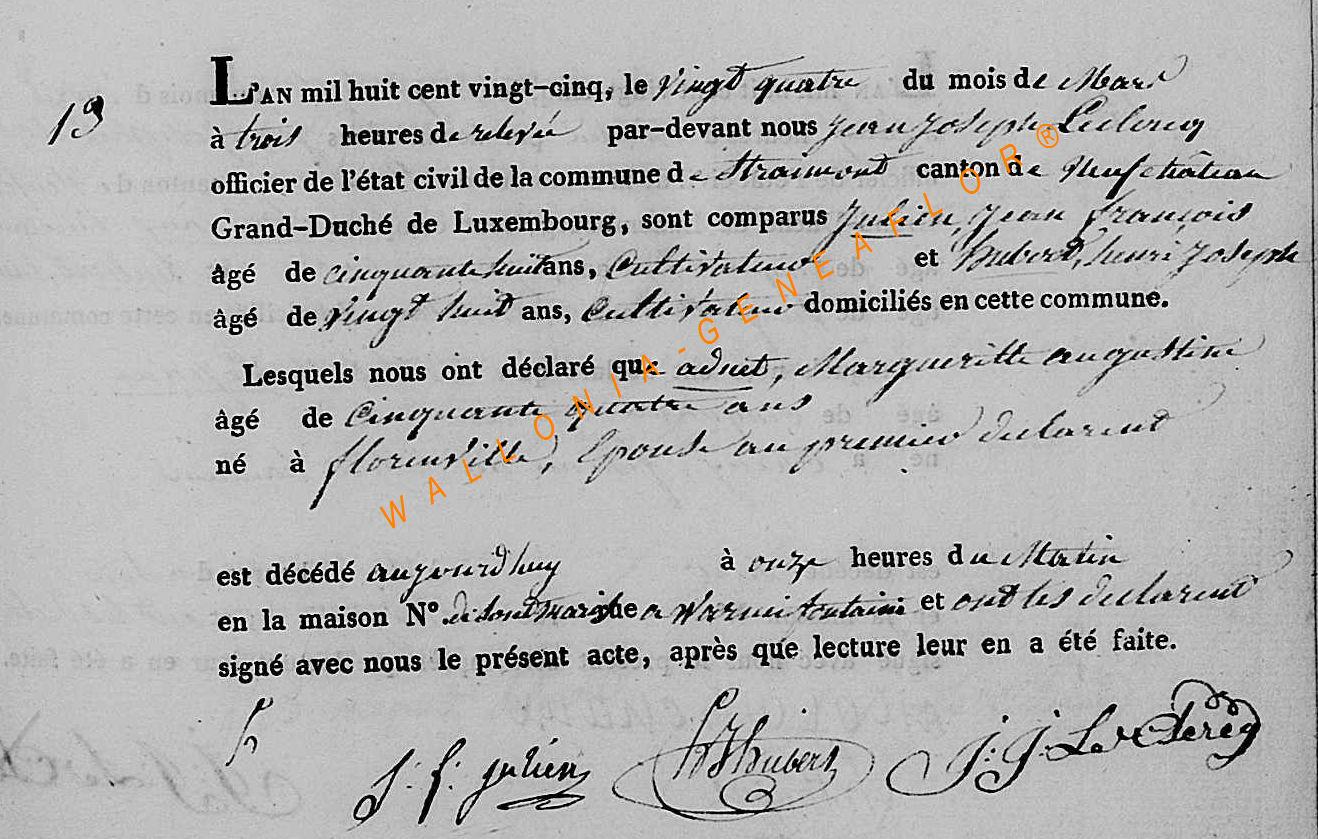 13
L'AN mil huit cent vingt-cinq, le vingt quatre du mois de Mars
à trois heures de relevée par-devant nous jean joseph Leclercq
officier de l'état civil de la commune de Straimont canton de Neufchâteau
Grand-Duché de Luxembourg, sont comparus Julien, jean françois
âgé de cinquante huit ans, Cultivateur et hubert, henri joseph
âgé de vingt huit ans, Cultivateur domiciliés en cette commune.
Lesquels nous ont déclaré que adnet, Margueritte augustine
âgé de Cinquante quatre ans
né à florenville, Epouse au premier declarent
est décédé aujourd'huy à onze heures du Matin
en la maison N°. de a Warmifontaine et ont les declarent
signé avec nous le présent acte, après que lecture leur en a été faite.
J. f. julien HJHubert J. J. Le Clercq
WALLONIA-GENEAFLOR®